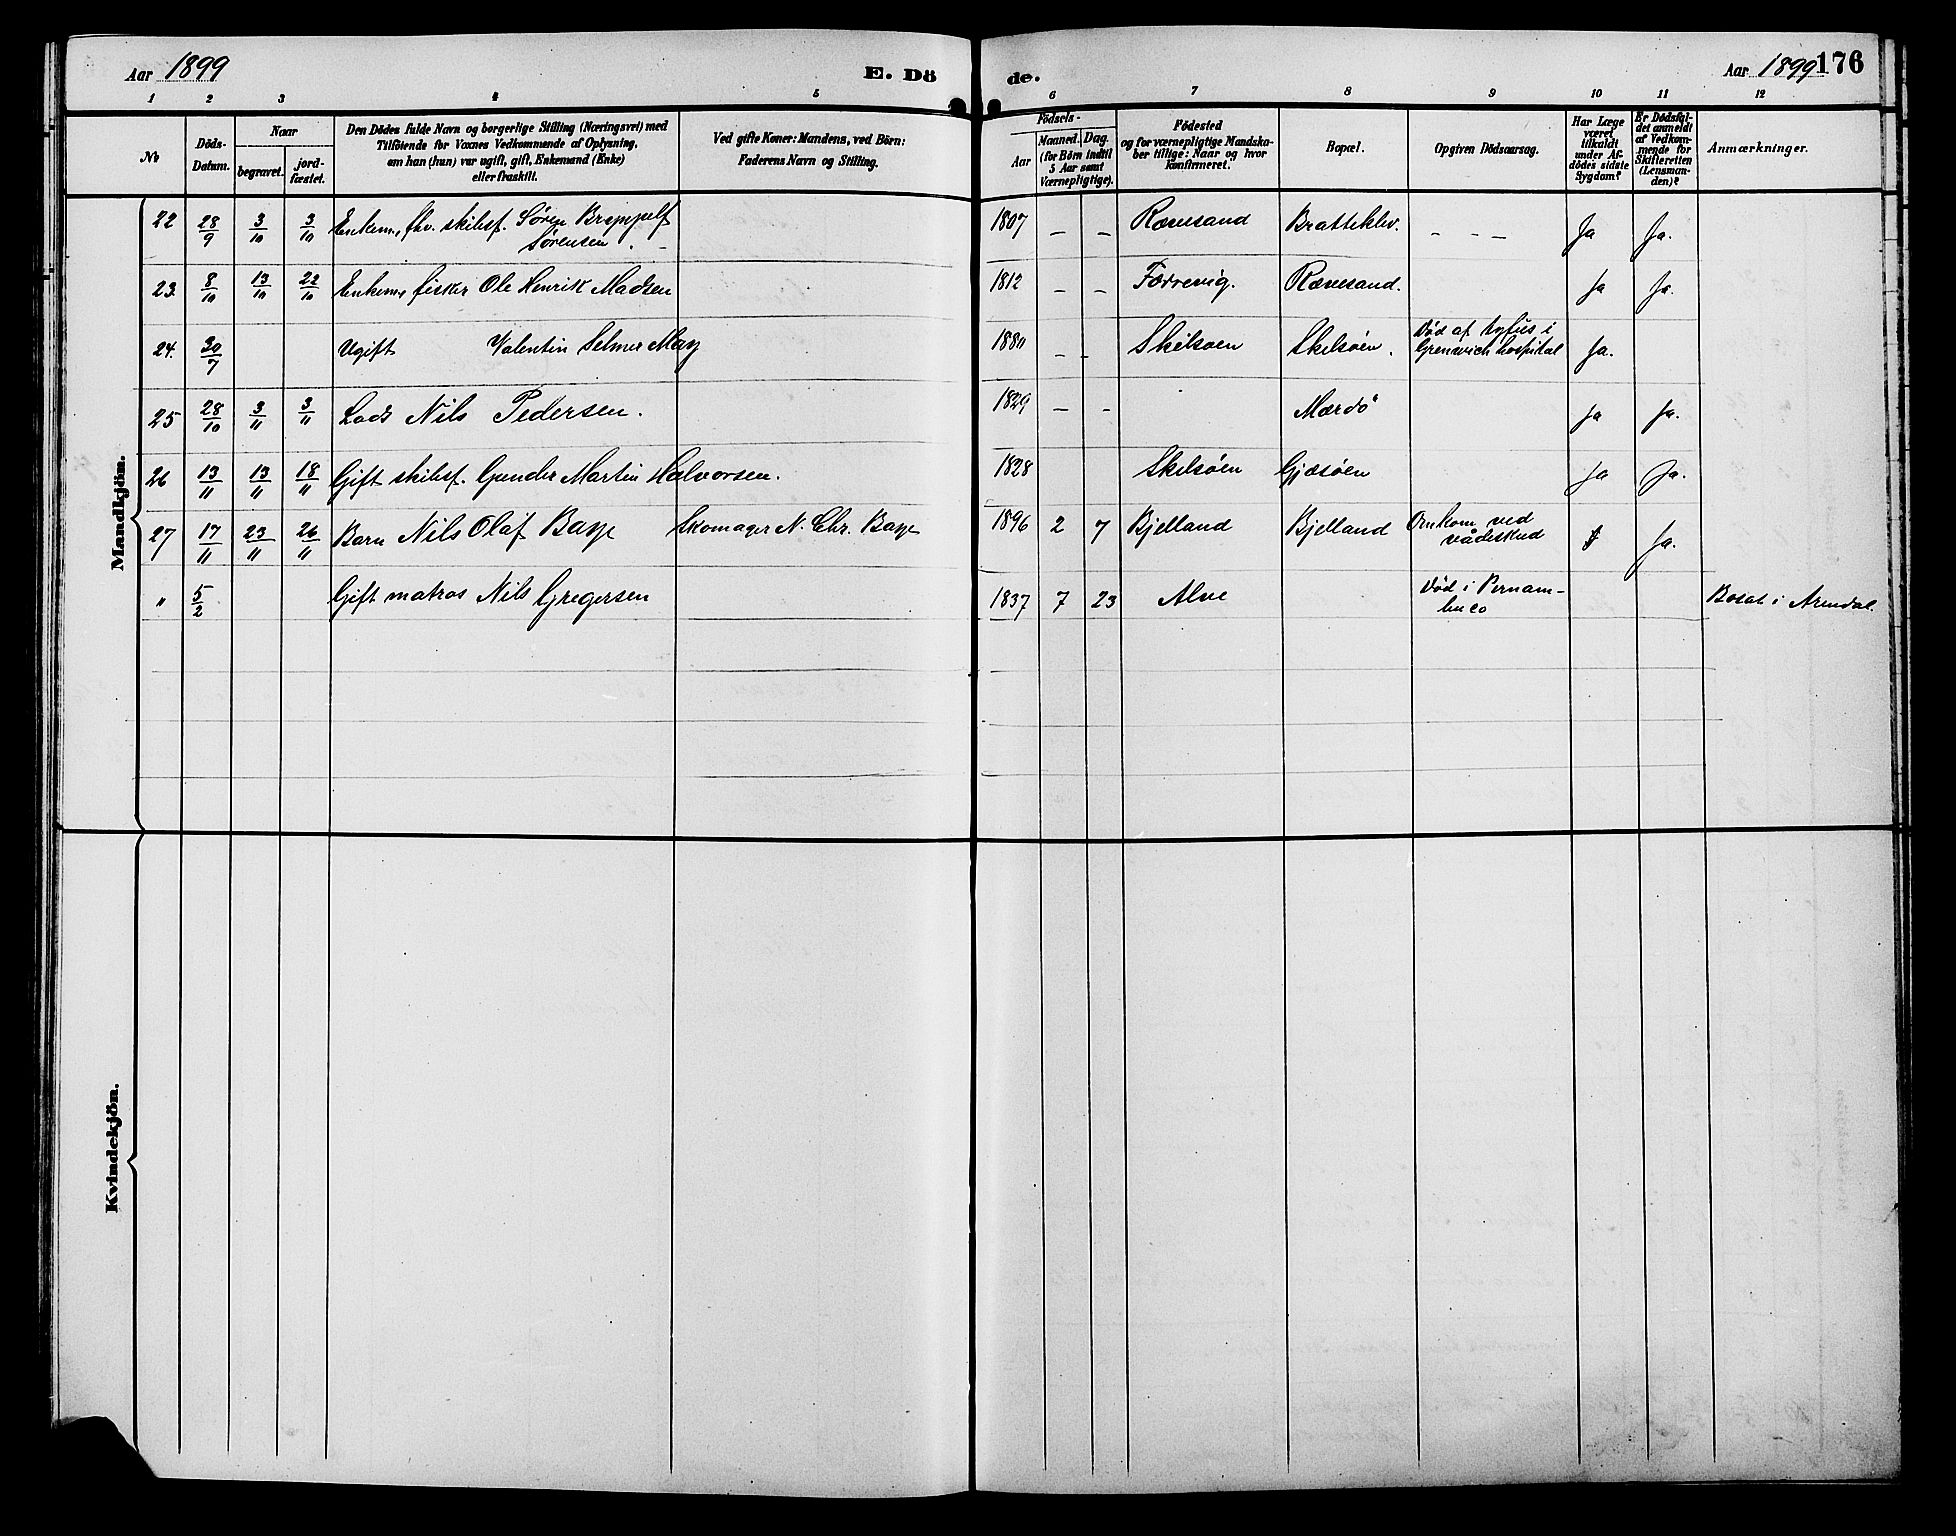 Aar 1899 E. Dö de. Aar 1899 176
1 2 3 4 5 6 7 8 9 10 11 12
No
Döds-
Datum.
Naar
begravet.
jord-
fæstet.
Den Dödes fulde Navn og borgerlige Stilling (Næringsvei) med
Tilföiende for Voxnes Vedkommende af Oplysning,
om han (hun) var ugift, gift, Enkemand (Enke)
eller fraskilt.
Ved gifte Koner: Mandens, ved Börn:
Faderens Navn og Stilling.
Födsels-
Aar
Maaned. Dag.
(for Börn indtil
5 Aar samt
Værnepligtige).
Födested
og for værnepligtige Mandska-
ber tillige: Naar og hvor
konfirmeret.
Bopæl.
Opgiven Dödsaarsag.
Har Læge
været
tilkaldt
under Af-
dödes sidste
Sygdom?
Er Dödsfal-
det anmeldt
af Vedkom-
mende for
Skifteretten
(Lensman-
den)?
Anmærkninger.
Mandkjön.
22 28/9 3/10 3/10 Enkem. fhv. skibsf. Søren
Sørensen. 1807 – – Rævesand Bratteklev. – – – Ja Ja.
23. 8/10 13/10 22/10 Enkem. fisker Ole Henrik Madsen 1812 – – Færrevig. Rævesand. Ja Ja.
24. 30/7 Ugift Valentin Selmer May 1880 – – Skilsøen Skilsøen. Død af tyfus i
Grenwich hospital Ja.
25 28/10 3/11 3/11 Lods Nils Pedersen. 1829 – – Mærdø Ja Ja.
26 13/11 13/11 18/11 Gift skibsf. Gunder Martin Halvorsen. 1828 Skilsøen Gjæsøen Ja Ja.
27 17/11 23/11 26/11 Barn Nils Olaf Baye Skomager N. Chr. Baye 1896 2 7 Bjelland Bjelland Omkom ved
vådeskud Ja.
" 5/2 Gift matros Nils Gregersen 1837 7 23 Alve Død i Pernam-
buco Bosat i Arendal.
Kvindekjön.